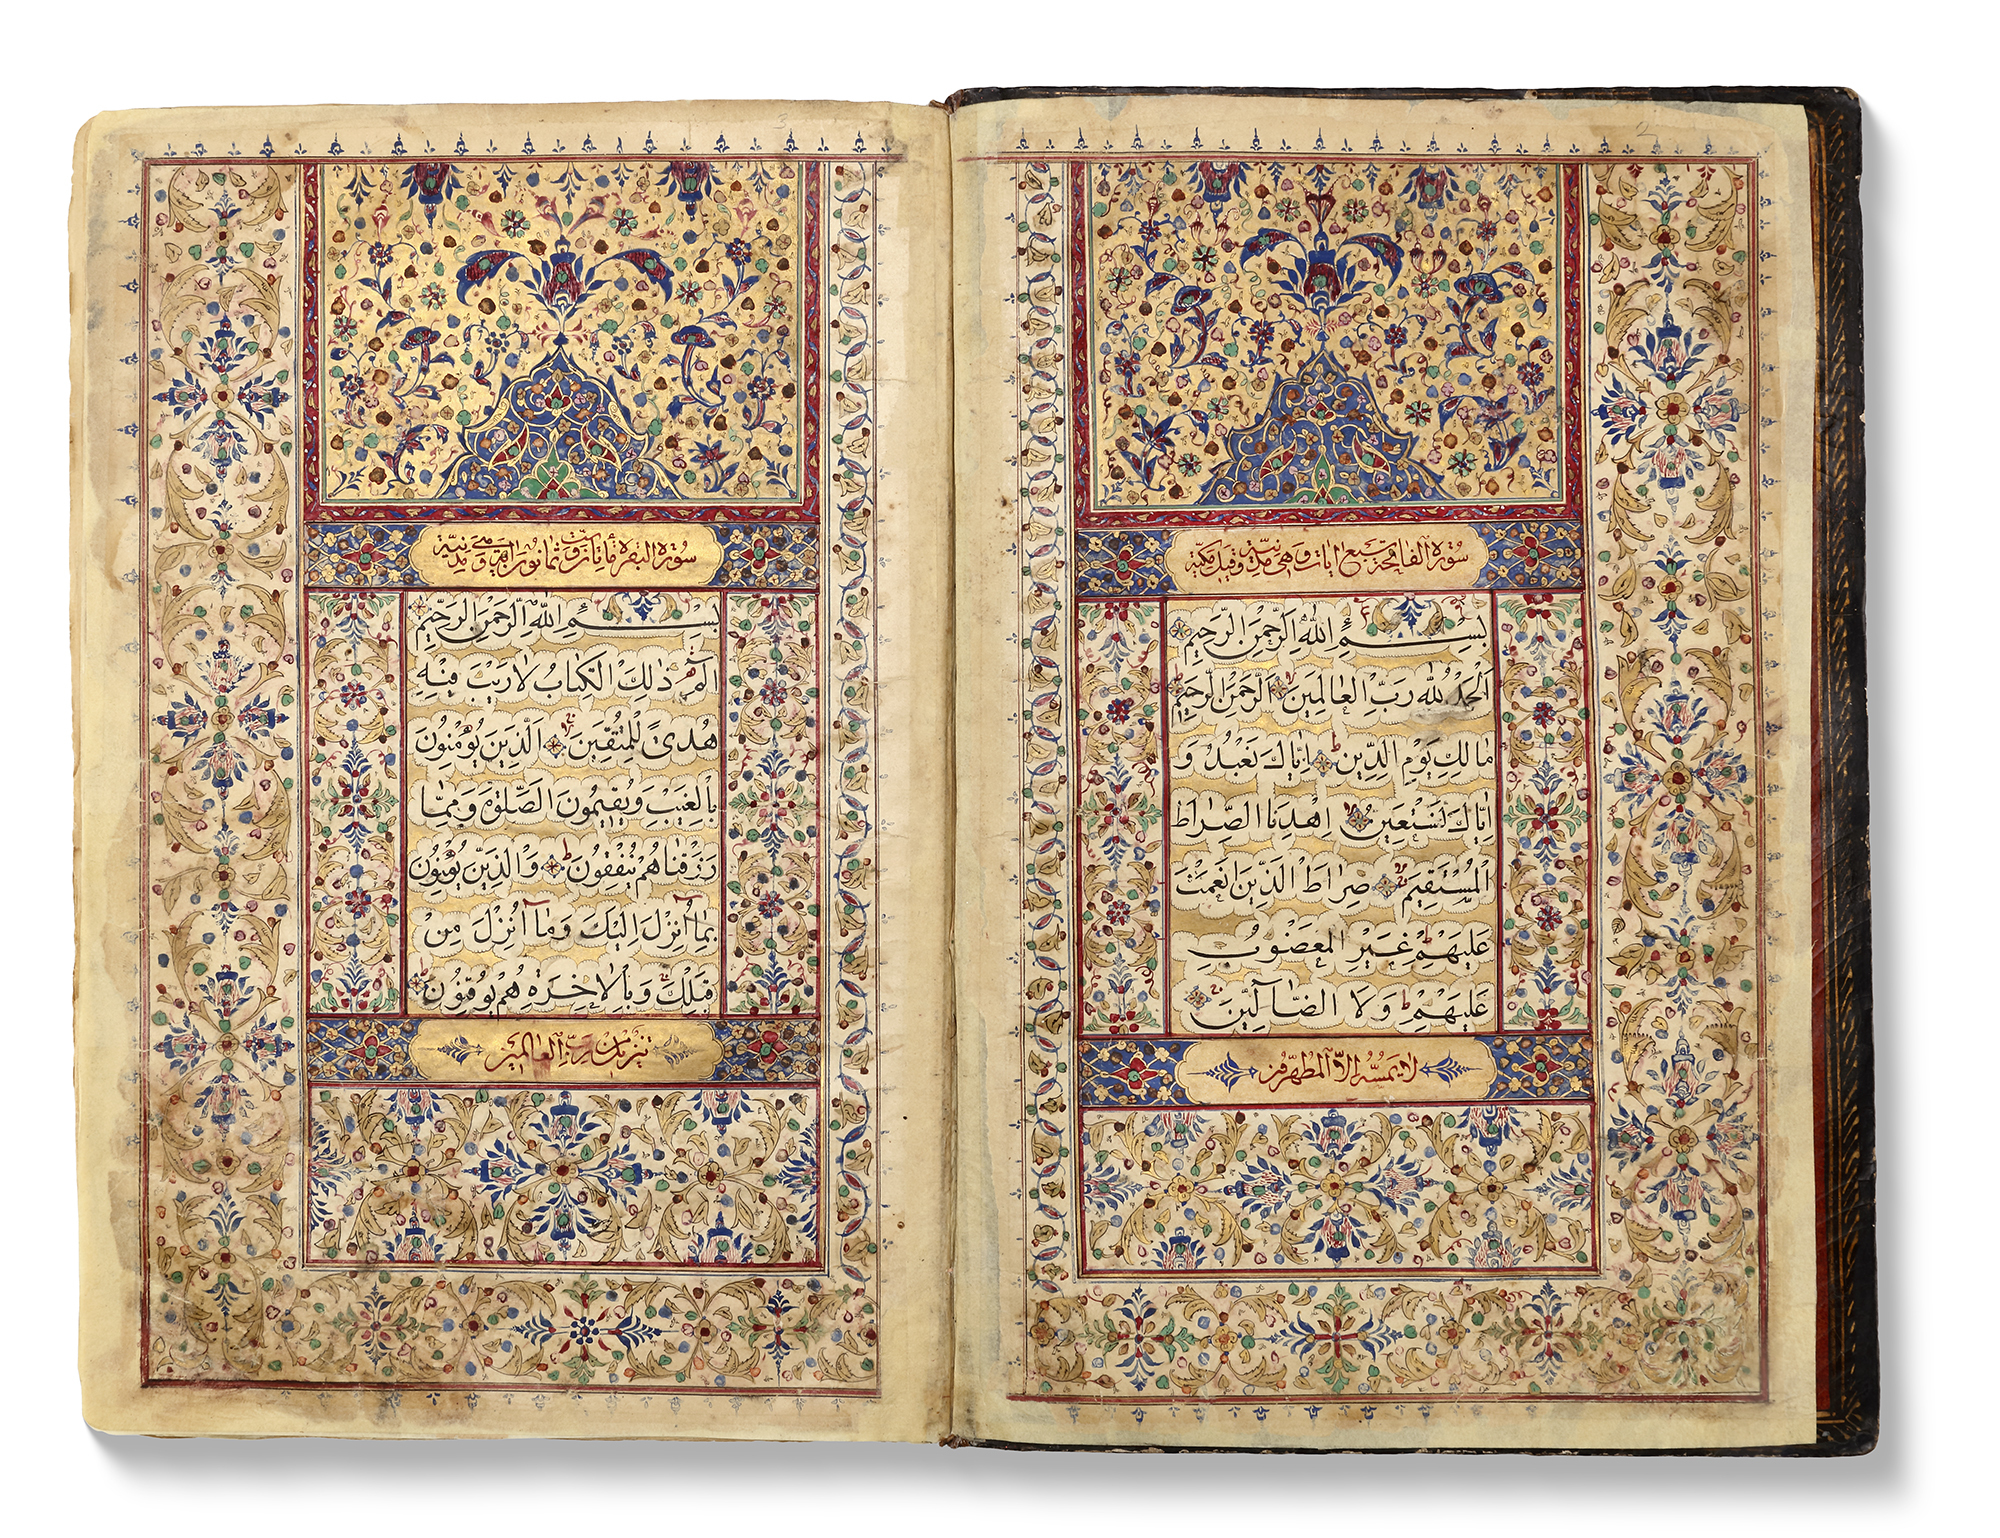 2
سُورَة الفَاتِحَة سَبع ايَات وَهِيَ مَدَنِيَّة وَقِيلَ مَكِّيَّة
بِسْمِ اللهِ الرَّحْمٰنِ الرَّحِيمِ
اَلْحَمْدُ لِلّهِ رَبِّ الْعَالَمِينَ اَلرَّحْمٰنِ الرَّحِيمِ
مَالِكِ يَوْمِ الدِّينِ اِيَّاكَ نَعْبُدُ وَ
اِيَّاكَ نَسْتَعِينُ اِهْدِنَا الصِّرَاطَ
الْمُسْتَقِيمَ صِرَاطَ الَّذِينَ اَنْعَمْتَ
عَلَيْهِمْ غَيْرِ الْمَغْضُوبِ
عَلَيْهِمْ وَلَا الضَّآلِّينَ
لَا يَمَسُّهُ اِلَّا الْمُطَهَّرُونَ
3
سُورَة البَقَرَة مأيتان وست وثمانون وهي مَدَنِيَّة
بِسْمِ اللهِ الرَّحْمٰنِ الرَّحِيمِ
الٓمٓ ذٰلِكَ الْكِتَابُ لَا رَيْبَ فِيهِ
هُدًى لِلْمُتَّقِينَ اَلَّذِينَ يُؤْمِنُونَ
بِالْغَيْبِ وَيُقِيمُونَ الصَّلٰوةَ وَمِمَّا
رَزَقْنَاهُمْ يُنْفِقُونَ وَالَّذِينَ يُؤْمِنُونَ
بِمَآ اُنْزِلَ اِلَيْكَ وَمَآ اُنْزِلَ مِنْ
قَبْلِكَ وَبِالْاخِرَةِ هُمْ يُوقِنُونَ
تَنْزِيلٌ مِنْ رَبِّ الْعَالَمِينَ